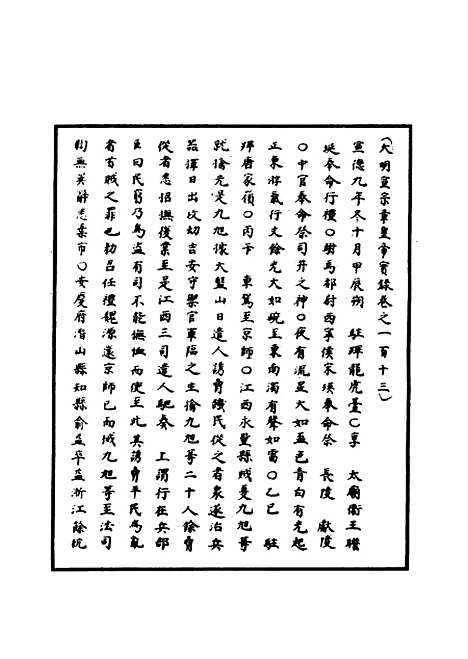 (大明宣宗章皇帝實錄卷之一百十三)
宣德九年冬十月甲辰朔　駐蹕龍虎臺〇享　太廟衛王瞻
埏奉命行禮〇駙馬都尉西寧侯宋瑛奉命祭　長陵　獻陵
〇中官奉命祭司井之神〇夜有流星大如盃色青白有光起
正東游氣行丈餘光大如碗至東南濁有聲如雷〇乙巳　駐
蹕唐家嶺〇丙午　車駕至京師〇江西永豐縣賊夏九旭等
就擒先是九旭據大盤山日遣人誘脅饑民從之者衆遂治兵
器擇日出攻劫吉安守禦官軍臨之生擒九旭等二十人餘脅
從者悉招撫復業至是江西三司遣人馳奏　上謂行在兵部
臣曰民窮乃為盜有司不能撫恤而使至此其誘脅平民為亂
者首賊之罪也勑呂任禮魏源還京師已而械九旭等至法司
鞫無異辭悉棄市〇安慶府潛山縣知縣俞益卒益浙江餘杭